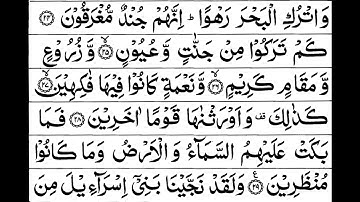 وَاتْرُكِ الْبَحْرَ رَهْوًا ؕ اِنَّهُمْ جُنْدٌ مُّغْرَقُوْنَ ﴿۲۴﴾
كَمْ تَرَكُوْا مِنْ جَنّٰتٍ وَّعُيُوْنٍ ﴿۲۵﴾ وَّ زُرُوْعٍ
وَّ مَقَامٍ كَرِيْمٍ ﴿۲۶﴾ وَّنَعْمَةٍ كَانُوْا فِيْهَا فٰكِهِيْنَ ﴿۲۷﴾
كَذٰلِكَ قف وَ اَوْرَثْنٰهَا قَوْمًا اٰخَرِيْنَ ﴿۲۸﴾ فَمَا
بَكَتْ عَلَيْهِمُ السَّمَآءُ وَ الْاَرْضُ وَمَا كَانُوْا
مُنْظَرِيْنَ ﴿۲۹﴾ وَلَقَدْ نَجَّيْنَا بَنِيْۤ اِسْرَآءِيْلَ مِنَ